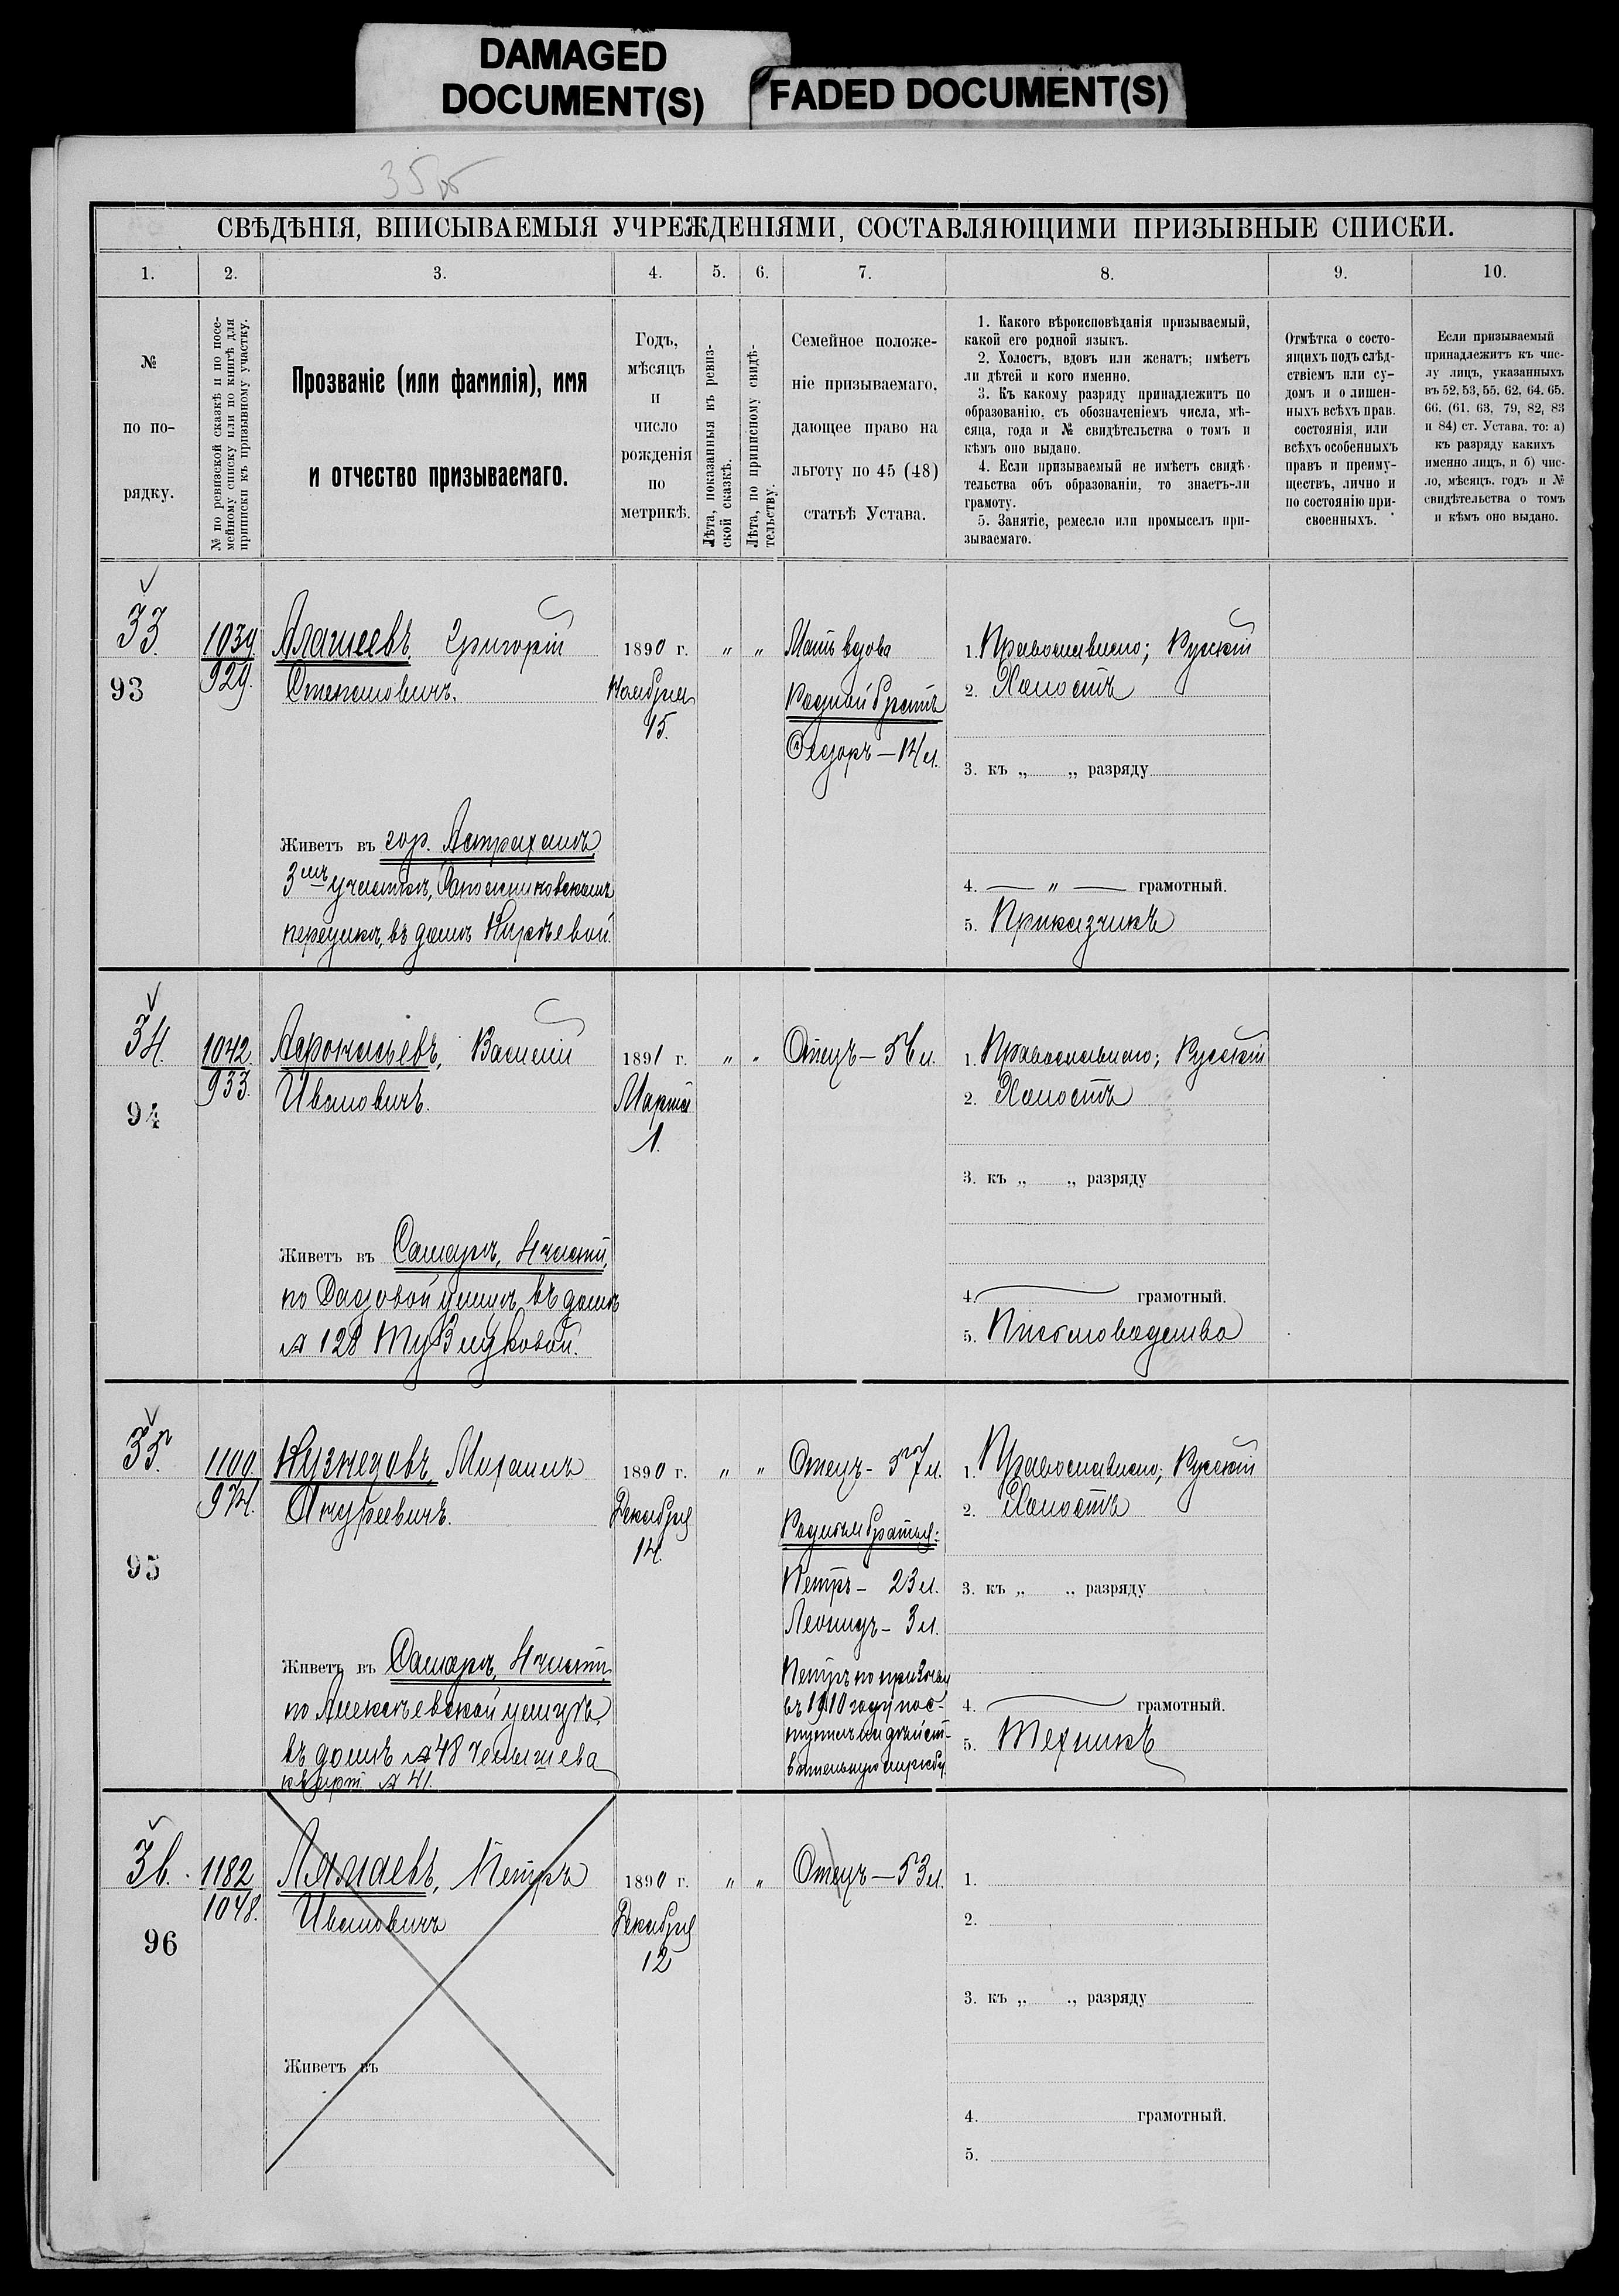 DAMAGED
DOCUMENT(S)
FADED DOCUMENT(S)
35об
СВѢДѢНІЯ, ВПИСЫВАЕМЫЯ УЧРЕЖДЕНІЯМИ, СОСТАВЛЯЮЩИМИ ПРИЗЫВНЫЕ СПИСКИ.
1. 2. 3. 4. 5. 6. 7. 8. 9. 10.
№
по по-
рядку.
№ по ревизской сказкѣ и по посе-
мейному списку или по книгѣ для
приписки къ призывному участку.
Прозваніе (или фамилія), имя
и отчество призываемаго.
Годъ,
мѣсяцъ
и
число
рожденія
по
метрикѣ.
Лѣта, показанныя въ ревиз-
ской сказкѣ.
Лѣта, по приписному свидѣ-
тельству.
Семейное положе-
ніе призываемаго,
дающее право на
льготу по 45 (48)
статьѣ Устава.
1. Какого вѣроисповѣданія призываемый,
какой его родной языкъ.
2. Холостъ, вдовъ или женатъ; имѣетъ
ли дѣтей и кого именно.
3. Къ какому разряду принадлежитъ по
образованію, съ обозначеніемъ числа, мѣ-
сяца, года и № свидѣтельства о томъ и
кѣмъ оно выдано.
4. Если призываемый не имѣетъ свидѣ-
тельства объ образованіи, то знаетъ-ли
грамоту.
5. Занятіе, ремесло или промыселъ при-
зываемаго.
Отмѣтка о состо-
ящихъ подъ слѣд-
ствіемъ или су-
домъ и о лишен-
ныхъ всѣхъ прав.
состоянія, или
всѣхъ особенныхъ
правъ и преиму-
ществъ, лично и
по состоянію при-
своенныхъ.
Если призываемый
принадлежитъ къ чис-
лу лицъ, указанныхъ
въ 52, 53, 55, 62, 64, 65,
66, (61, 63, 79, 82, 83
и 84) ст. Устава, то: а)
къ разряду какихъ
именно лицъ, и б) чис-
ло, мѣсяцъ, годъ и №
свидѣтельства о томъ
и кѣмъ оно выдано.
33.
93
1039.
929.
Алашеевъ, Григорій
Степановичъ.
Живетъ въ гор. Астрахань,
3мъ участкѣ, Сапожниковскомъ
переулкѣ, въ домѣ Кирѣевой.
1890 г.
Ноября
15.
„ „
Мать вдова
Родной братъ
Ѳедоръ — 14 л.
1. Православное; Русскій
2. Холостъ
3. къ „ „ разряду
4. — „ — грамотный.
5. Приказчикъ
34.
94
1042.
933.
Афонасьевъ, Василій
Ивановичъ.
Живетъ въ Самарѣ, 4 части,
по Садовой улицѣ, въ домѣ
№ 128
1891 г.
Марта
1.
„ „
Отецъ — 56 л.
1. Православное; Русскій
2. Холостъ
3. къ „ „ разряду
4. грамотный.
5. Письмоводства
35.
95
1100.
974.
Кузнецовъ, Михаилъ
Андреевичъ.
Живетъ въ Самарѣ, 4 части,
по Алексѣевской улицѣ,
въ домѣ № 48 Челышева
кварт № 41.
1890 г.
Декабря
14.
„ „
Отецъ - 57 л.
Родные братья:
Петръ — 23 л.
Леонидъ — 3 л.
Петръ по призыву
въ 1910 году пос-
тупилъ на дѣйст-
вительную службу.
1. Православное; Русскій
2. Холостъ
3. къ „ „ разряду
4. грамотный.
5. Техникъ
36.
96
1182
1048.
Лямаевъ, Петръ
Ивановичъ
Живетъ въ
1890 г.
Декабря
12
„ „
Отецъ — 53 л.
1.
2.
3. къ „ „ разряду
4. грамотный.
5.